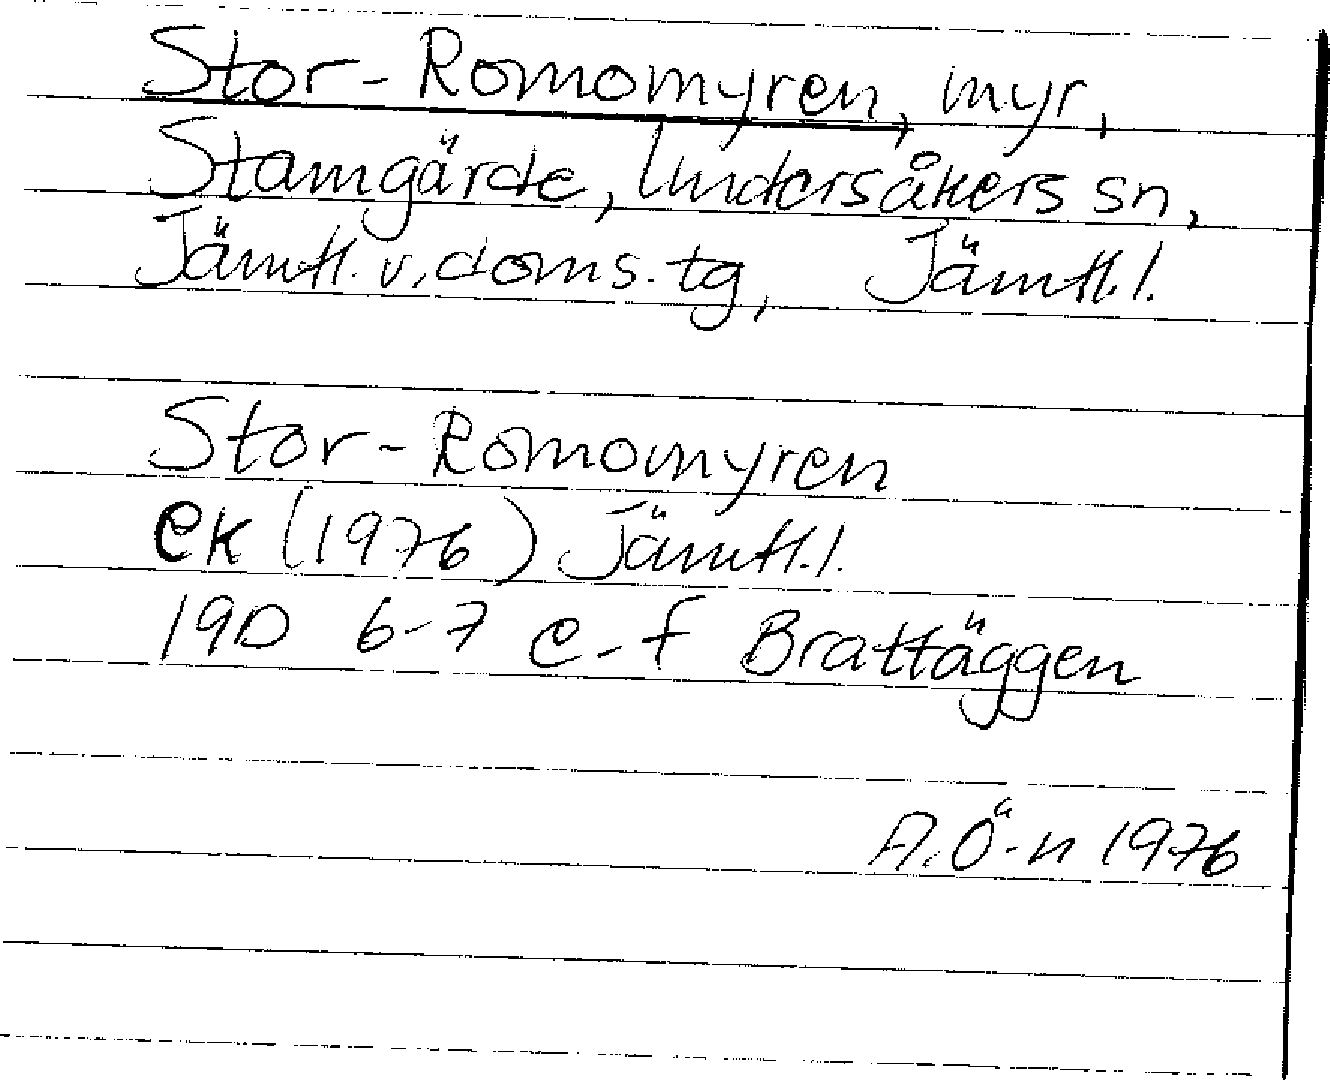 Stor-Romomyren, myr,
Stamgärde, Undersåkers sn,
Jämtl. v. doms. tg, Jämtl. l.
Stor-Romomyren
ek (1976) Jämtl. l.
19D 6-7 e-f Brattäggen
A.Ö-n 1976